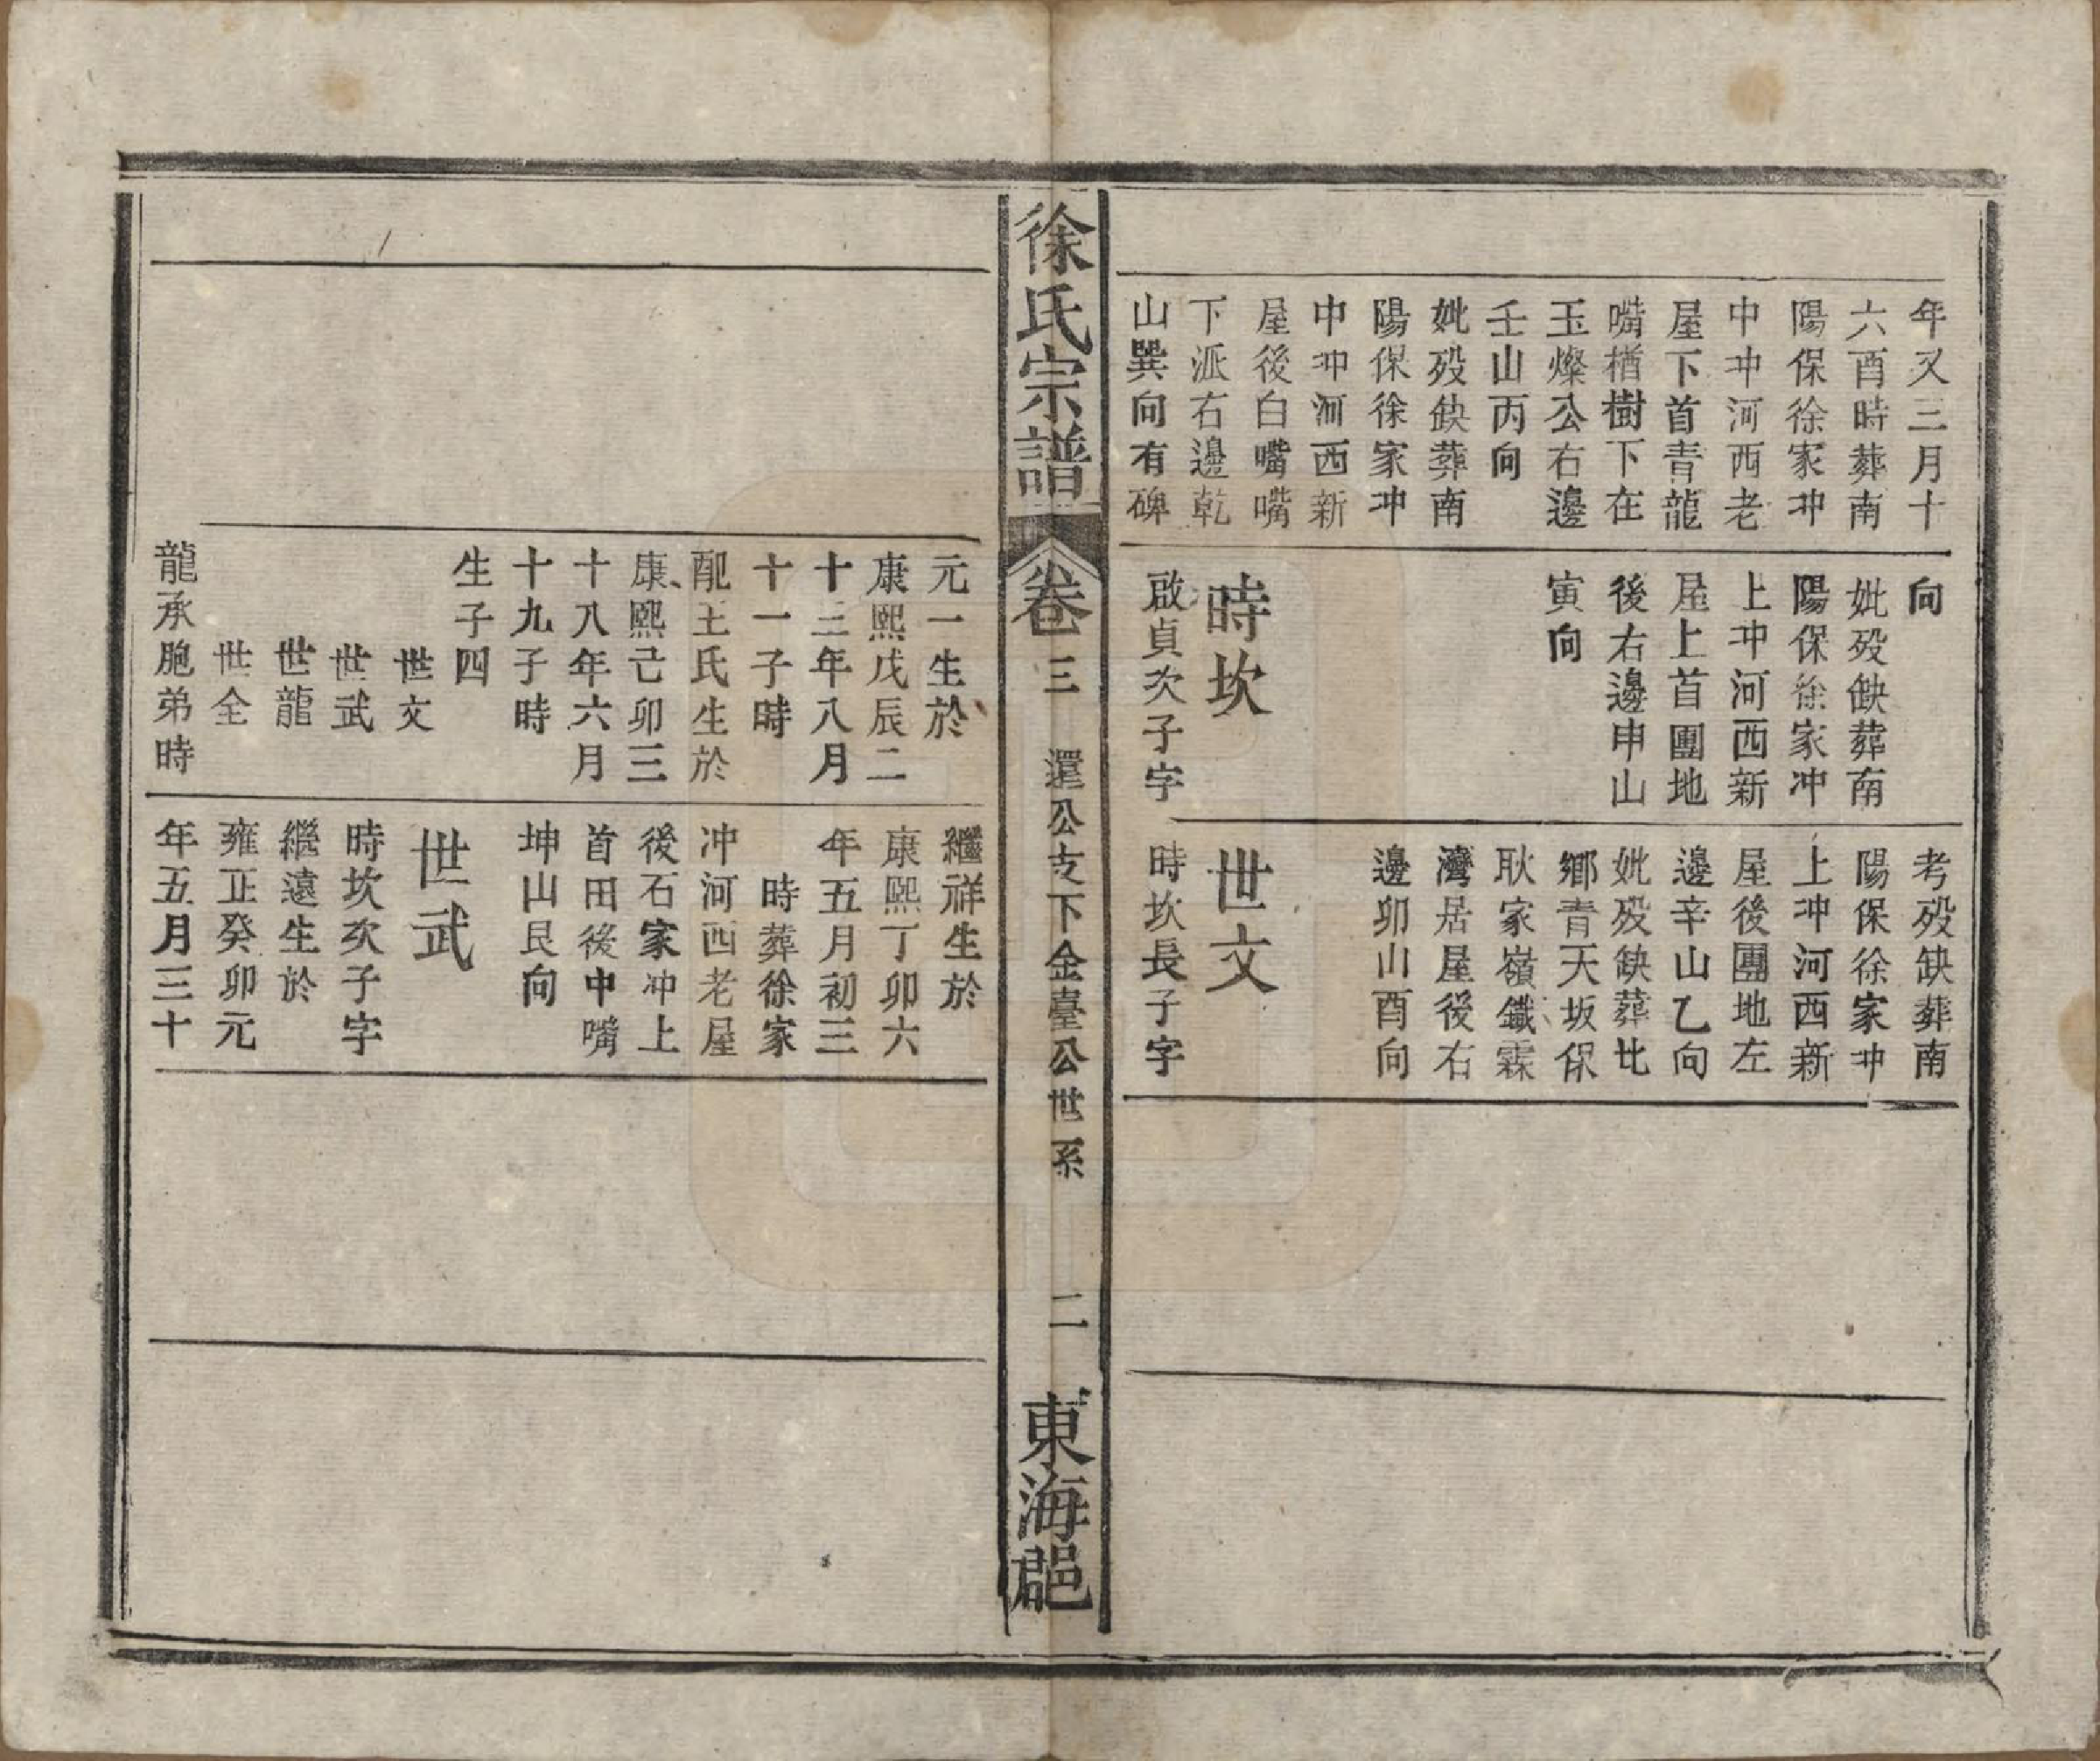 年又三月十
六酉時葬南
陽保徐家冲
中冲河西老
屋下首青龍
嘴楢樹下在
玉燦公右邊
壬山丙向
妣殁缺葬南
陽保徐家冲
中冲河西新
屋後白嘴嘴
下派右邊乾
山巽向有碑
向
妣殁缺葬南
陽保徐家冲
上冲河西新
屋上首團地
後右邊申山
寅向
時坎
啟貞次子字
考殁缺葬南
陽保徐家冲
上冲河西新
屋後團地左
邊辛山乙向
妣殁缺葬北
鄉青天坂保
耿家嶺鐵霖
灣居屋後右
邊卯山酉向
世文
時坎長子字
徐氏宗譜
卷三
還公支下金臺公世系
二
東海郡
元一生於
康熙戊辰二
十三年八月
十一子時
配王氏生於
康熙己卯三
十八年六月
十九子時
生子四
世文
世武
世龍
世全
龍承胞弟時
繼祥生於
康熙丁卯六
年五月初三
時葬徐家
冲河西老屋
後石家冲上
首田後中嘴
坤山艮向
世武
時坎次子字
繼遠生於
雍正癸卯元
年五月三十